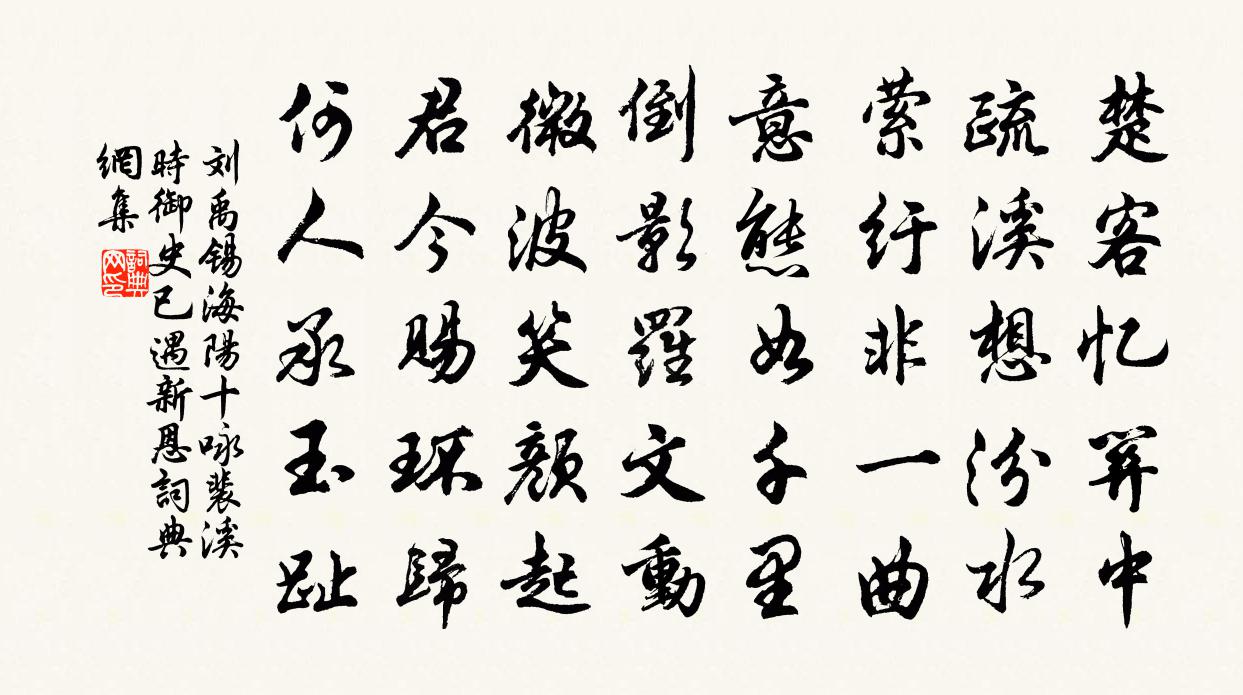 楚客忆關中
疏溪想汾水
萦纡非一曲
意態如千里
倒影羅文動
微波笑颜起
君今賜环歸
何人承玉趾
刘禹锡海陽十咏裴溪
時御史已遇新恩詞典
網集
詞典
网印